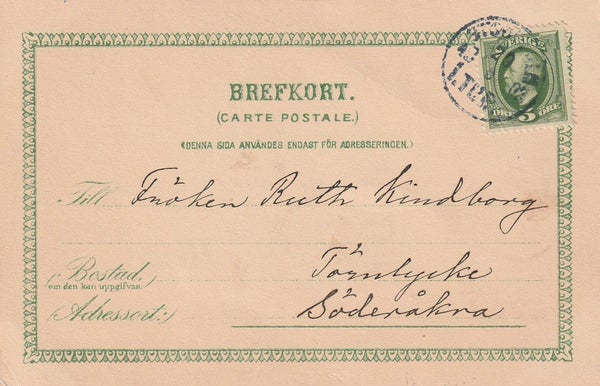 SVERIGE
ÖRE 5 ÖRE
BREFKORT.
(CARTE POSTALE.)
(DENNA SIDA ANVÄNDES ENDAST FÖR ADRESSERINGEN.)
Till Fröken Ruth Kindborg
Törnlycke
(Bostad,
om den kan uppgifvas:)
Söderåkra
(Adressort:)